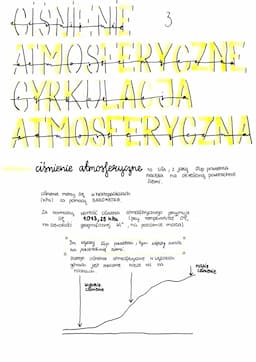 CIŚNIENIE 3
ATMOSFERYCZNE
CYRKULACJA
ATMOSFERYCZNA
ciśnienie atmosferyczne to siła, z jaką słup powietrza
naciska na określoną powierzchnię
Ziemi.
ciśnienie mierzy się w hektopaskalach
(hPa) za pomocą BAROMETRA.
Za normalną wartość ciśnienia atmosferycznego przyjmuje
się 1013,25 hPa (przy temperaturze 0°C,
na szerokości geograficznej 45°, na poziomie morza)
Im wyższy słup powietrza, tym większy nacisk
na powierzchnię ziemi.
Dlatego ciśnienie atmosferyczne w wysokich
górach jest znacznie niższe niż na
nizinach.
niskie
ciśnienie
wysokie
ciśnienie